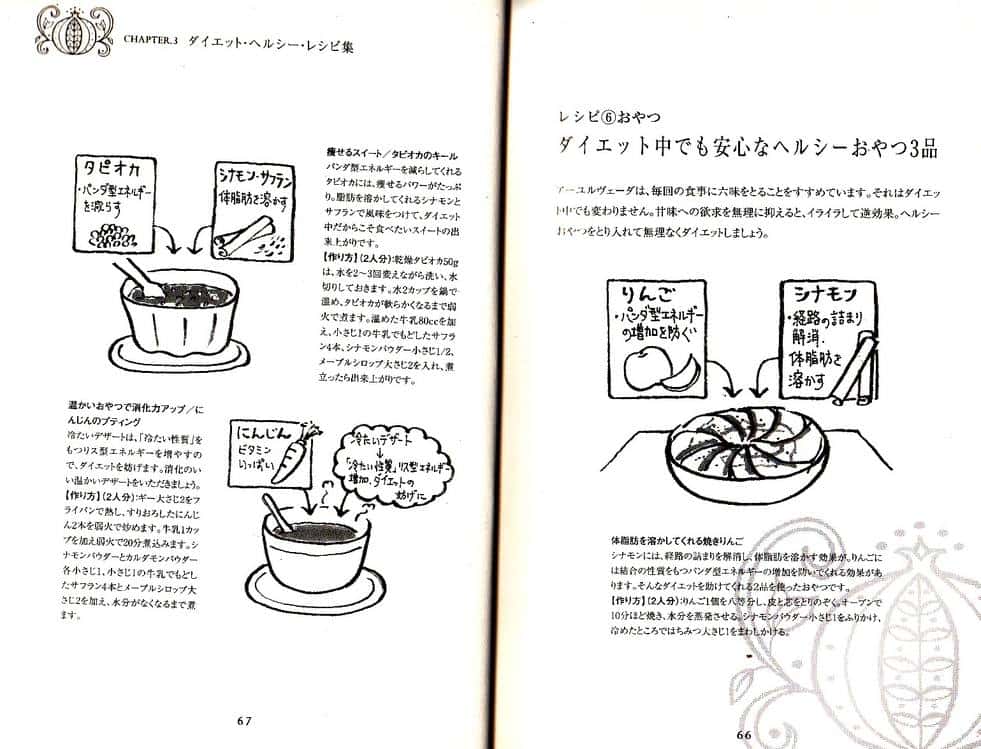 CHAPTER.3 ダイエット・ヘルシー・レシピ集
タピオカ
・パンダ型エネルギー
を減らす
シナモン・サフラン
体脂肪を溶かす
痩せるスイート/タピオカのキール
パンダ型エネルギーを減らしてくれる
タピオカには、痩せるパワーがたっぷ
り。脂肪を溶かしてくれるシナモンと
サフランで風味をつけて、ダイエット
中だからこそ食べたいスイートの出
来上がりです。
【作り方】(2人分):乾燥タピオカ50g
は、水を2〜3回変えながら洗い、水
切りしておきます。水2カップを鍋で
温め、タピオカが軟らかくなるまで弱
火で煮ます。温めた牛乳80ccを加
え、小さじ1の牛乳でもどしたサフラ
ン4本、シナモンパウダー小さじ1/2、
メープルシロップ大さじ2を入れ、煮
立ったら出来上がりです。
温かいおやつで消化力アップ/に
んじんのプティング
冷たいデザートは、「冷たい性質」を
もつリス型エネルギーを増やすの
で、ダイエットを妨げます。消化のい
い温かいデザートをいただきましょう。
【作り方】(2人分):ギー大さじ2をフ
ライパンで熱し、すりおろしたにんじ
ん2本を弱火で炒めます。牛乳1カッ
プを加え弱火で20分煮込みます。シ
ナモンパウダーとカルダモンパウダー
各小さじ1、小さじ1の牛乳でもどし
たサフラン4本とメープルシロップ大
さじ2を加え、水分がなくなるまで煮
ます。
にんじん
ビタミン
いっぱい
冷たいデザート
↓
「冷たい性質」リス型エネルギー
増加、ダイエットの
妨げに
67
レシピ⑥おやつ
ダイエット中でも安心なヘルシーおやつ3品
アーユルヴェーダは、毎回の食事に六味をとることをすすめています。それはダイエッ
ト中でも変わりません。甘味への欲求を無理に抑えると、イライラして逆効果。ヘルシー
おやつをとり入れて無理なくダイエットしましょう。
りんご
・パンダ型エネルギー
の増加を防ぐ
シナモン
・経路の詰まり
解消.
体脂肪を
溶かす
体脂肪を溶かしてくれる焼きりんご
シナモンには、経路の詰まりを解消し、体脂肪を溶かす効果が。りんごに
は結合の性質をもつパンダ型エネルギーの増加を防いでくれる効果があ
ります。そんなダイエットを助けてくれる2品を使ったおやつです。
【作り方】(2人分):りんご1個を八等分し、皮と芯をとりのぞく。オーブンで
10分ほど焼き、水分を蒸発させる。シナモンパウダー小さじ1をふりかけ、
冷めたところではちみつ大さじ1をまわしかける。
66